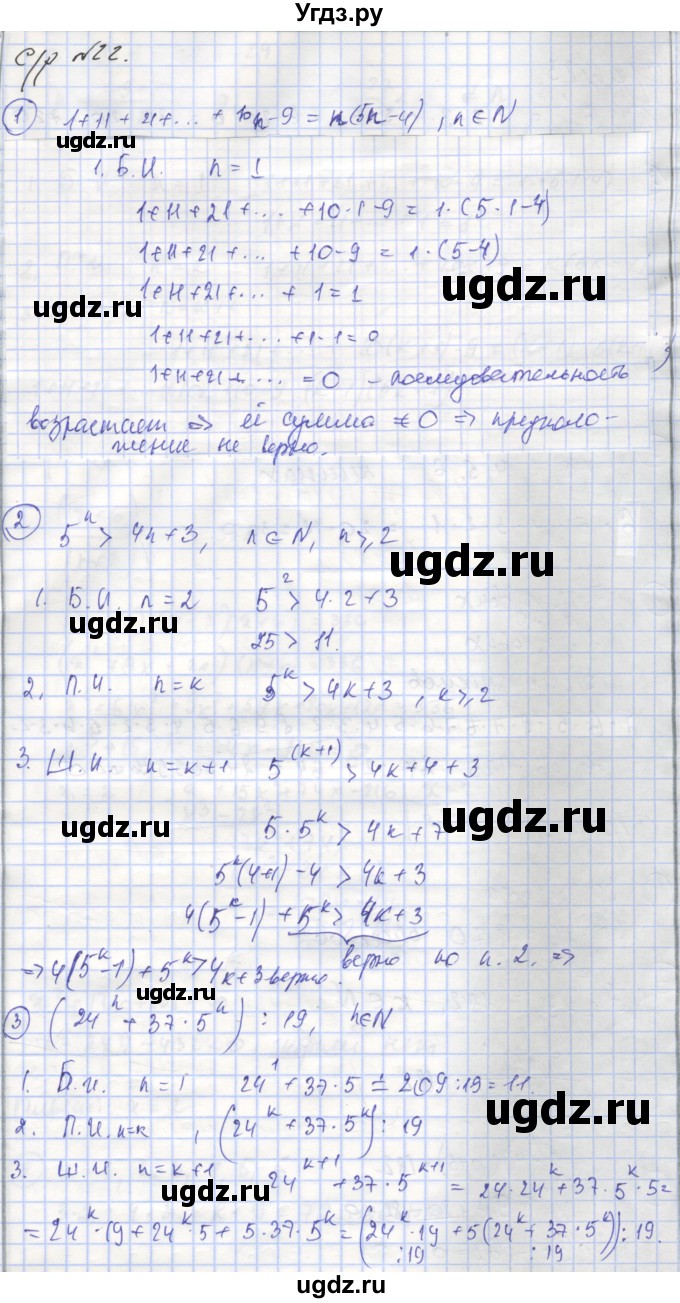 Угдз.ру
С/р №22.
① 1+11+21+... + 10n-9 = n(5n-4), n∈N
1. Б.И. n=1
1+11+21+... +10·1-9 = 1·(5·1-4)
1+11+21+... +10-9 = 1·(5-4)
1+11+21+... + 1=1
ugdz.ru
ugdz.ru
1+11+21+... +1-1=0
1+11+21+... =0 - последовательность
возрастает ⇒ её сумма ≠0 ⇒ предполо-
жение не верно.
② 5ⁿ > 4n+3, n∈N, n⩾2
ugdz.ru
1. Б.И. n=2 5² > 4·2+3
ugdz.ru
25 > 11.
2. П.И. n=k 5ᵏ > 4k+3, k⩾2
3. Ш.И. n=k+1 5⁽ᵏ⁺¹⁾ > 4k+4+3
ugdz.ru
5·5ᵏ > 4k+7
ugdz.ru
5ᵏ(4+1)-4 > 4k+3
4(5ᵏ-1)+5ᵏ > 4k+3
верно по п.2. ⇒
⇒ 4(5ᵏ-1)+5ᵏ > 4k+3 верно.
ugdz.ru
③ (24ⁿ+37·5ⁿ) ⋮ 19, n∈N
1. Б.И. n=1 24¹+37·5 = 209:19=11.
ugdz.ru
2. П.И. n=k, (24ᵏ+37·5ᵏ) ⋮ 19
3. Ш.И. n=k+1 24ᵏ⁺¹+37·5ᵏ⁺¹ = 24·24ᵏ+37·5ᵏ·5=
= 24ᵏ·19+24ᵏ·5+5·37·5ᵏ = (24ᵏ·19+5(24ᵏ+37·5ᵏ)) ⋮ 19.
⋮19 ⋮19
ugdz.ru